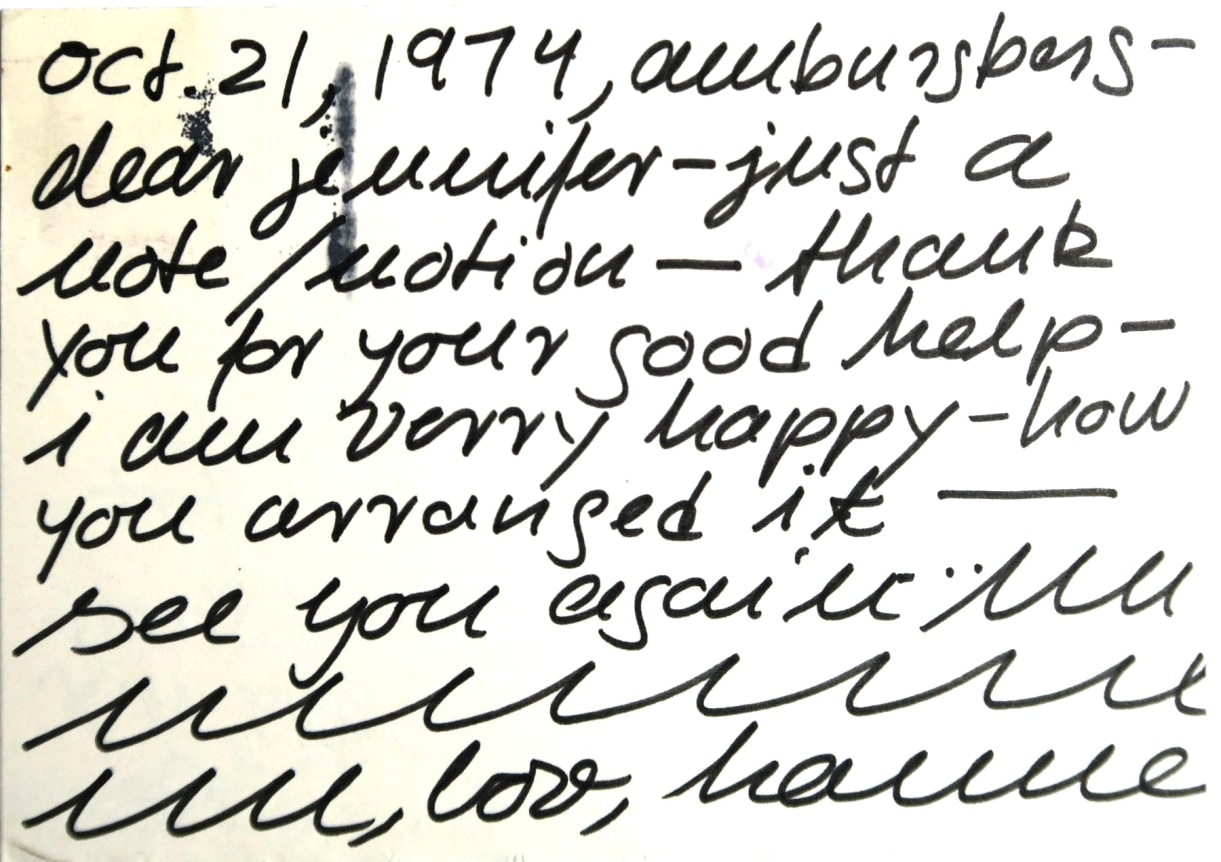 oct. 21, 1974, amburgberg-
dear jennifer-just a
note/notion — thank
you for your good help-
i am verry happy-how
you arranged it —
see you again
, love, hanne